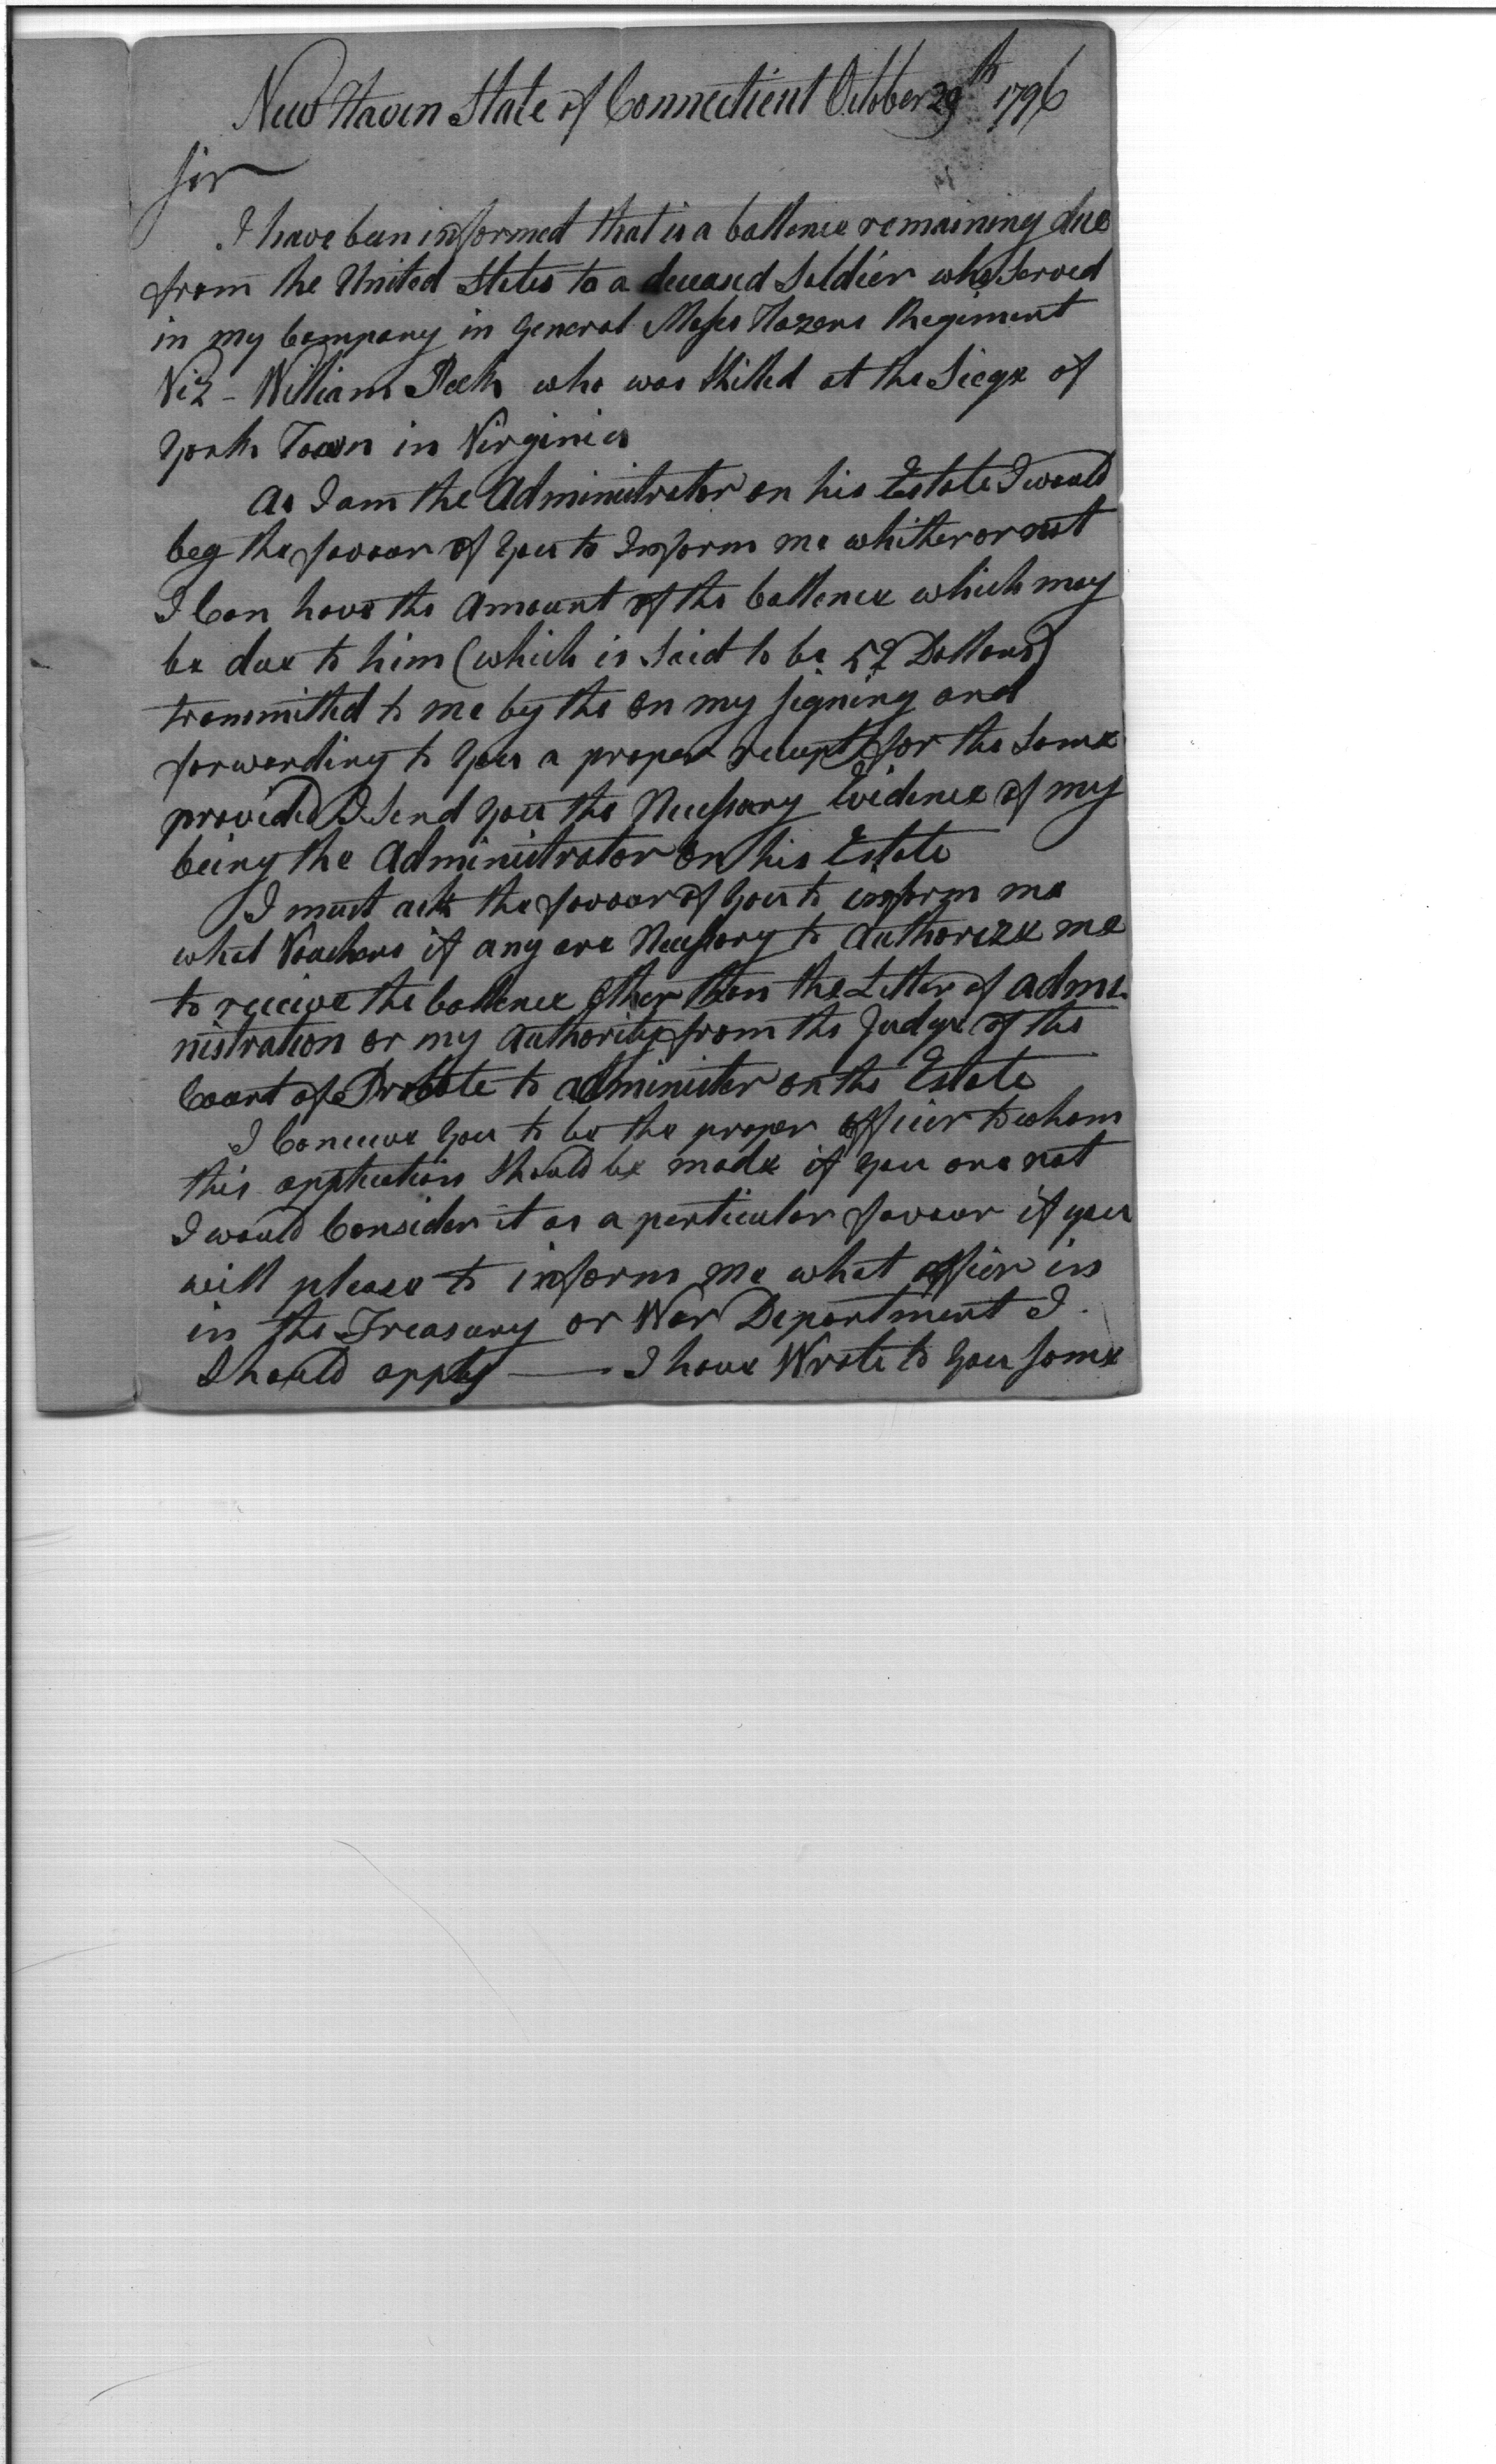 New Haven State of Connecticut October 29th 1796
Sir
I have been informed that is a ballence remaining due
from the United States to a deceased Soldier who Served
in my Company in General Moses Hazens Regiment
Viz - William Peck who was Killed at the Siege of
York Town in Virginia
As I am the Administrator on his Estate I would
beg the favour of you to Inform me whither or not
I Can have the Amount of the ballence which may
be due to him (which is Said to be 52 Dollars)
transmitted to me by the on my signing and
forwarding to you a proper receipt for the Same
provided I Send you the Necessary Evidence of my
being the Administrator on his Estate
I must ask the favour of you to inform me
what Vouchers if any are Necessary to Authorize me
to receive the ballence Other than the Letter of admi-
nistration or my Authority from the Judge of the
Court of Probate to administer on the Estate
I Conceive you to be the proper officer to whom
this application Should be made if you are not
I would Consider it as a perticular favour if you
will please to inform me what officer in
in the Treasury or War Department I
Should apply — I have Wrote to you some